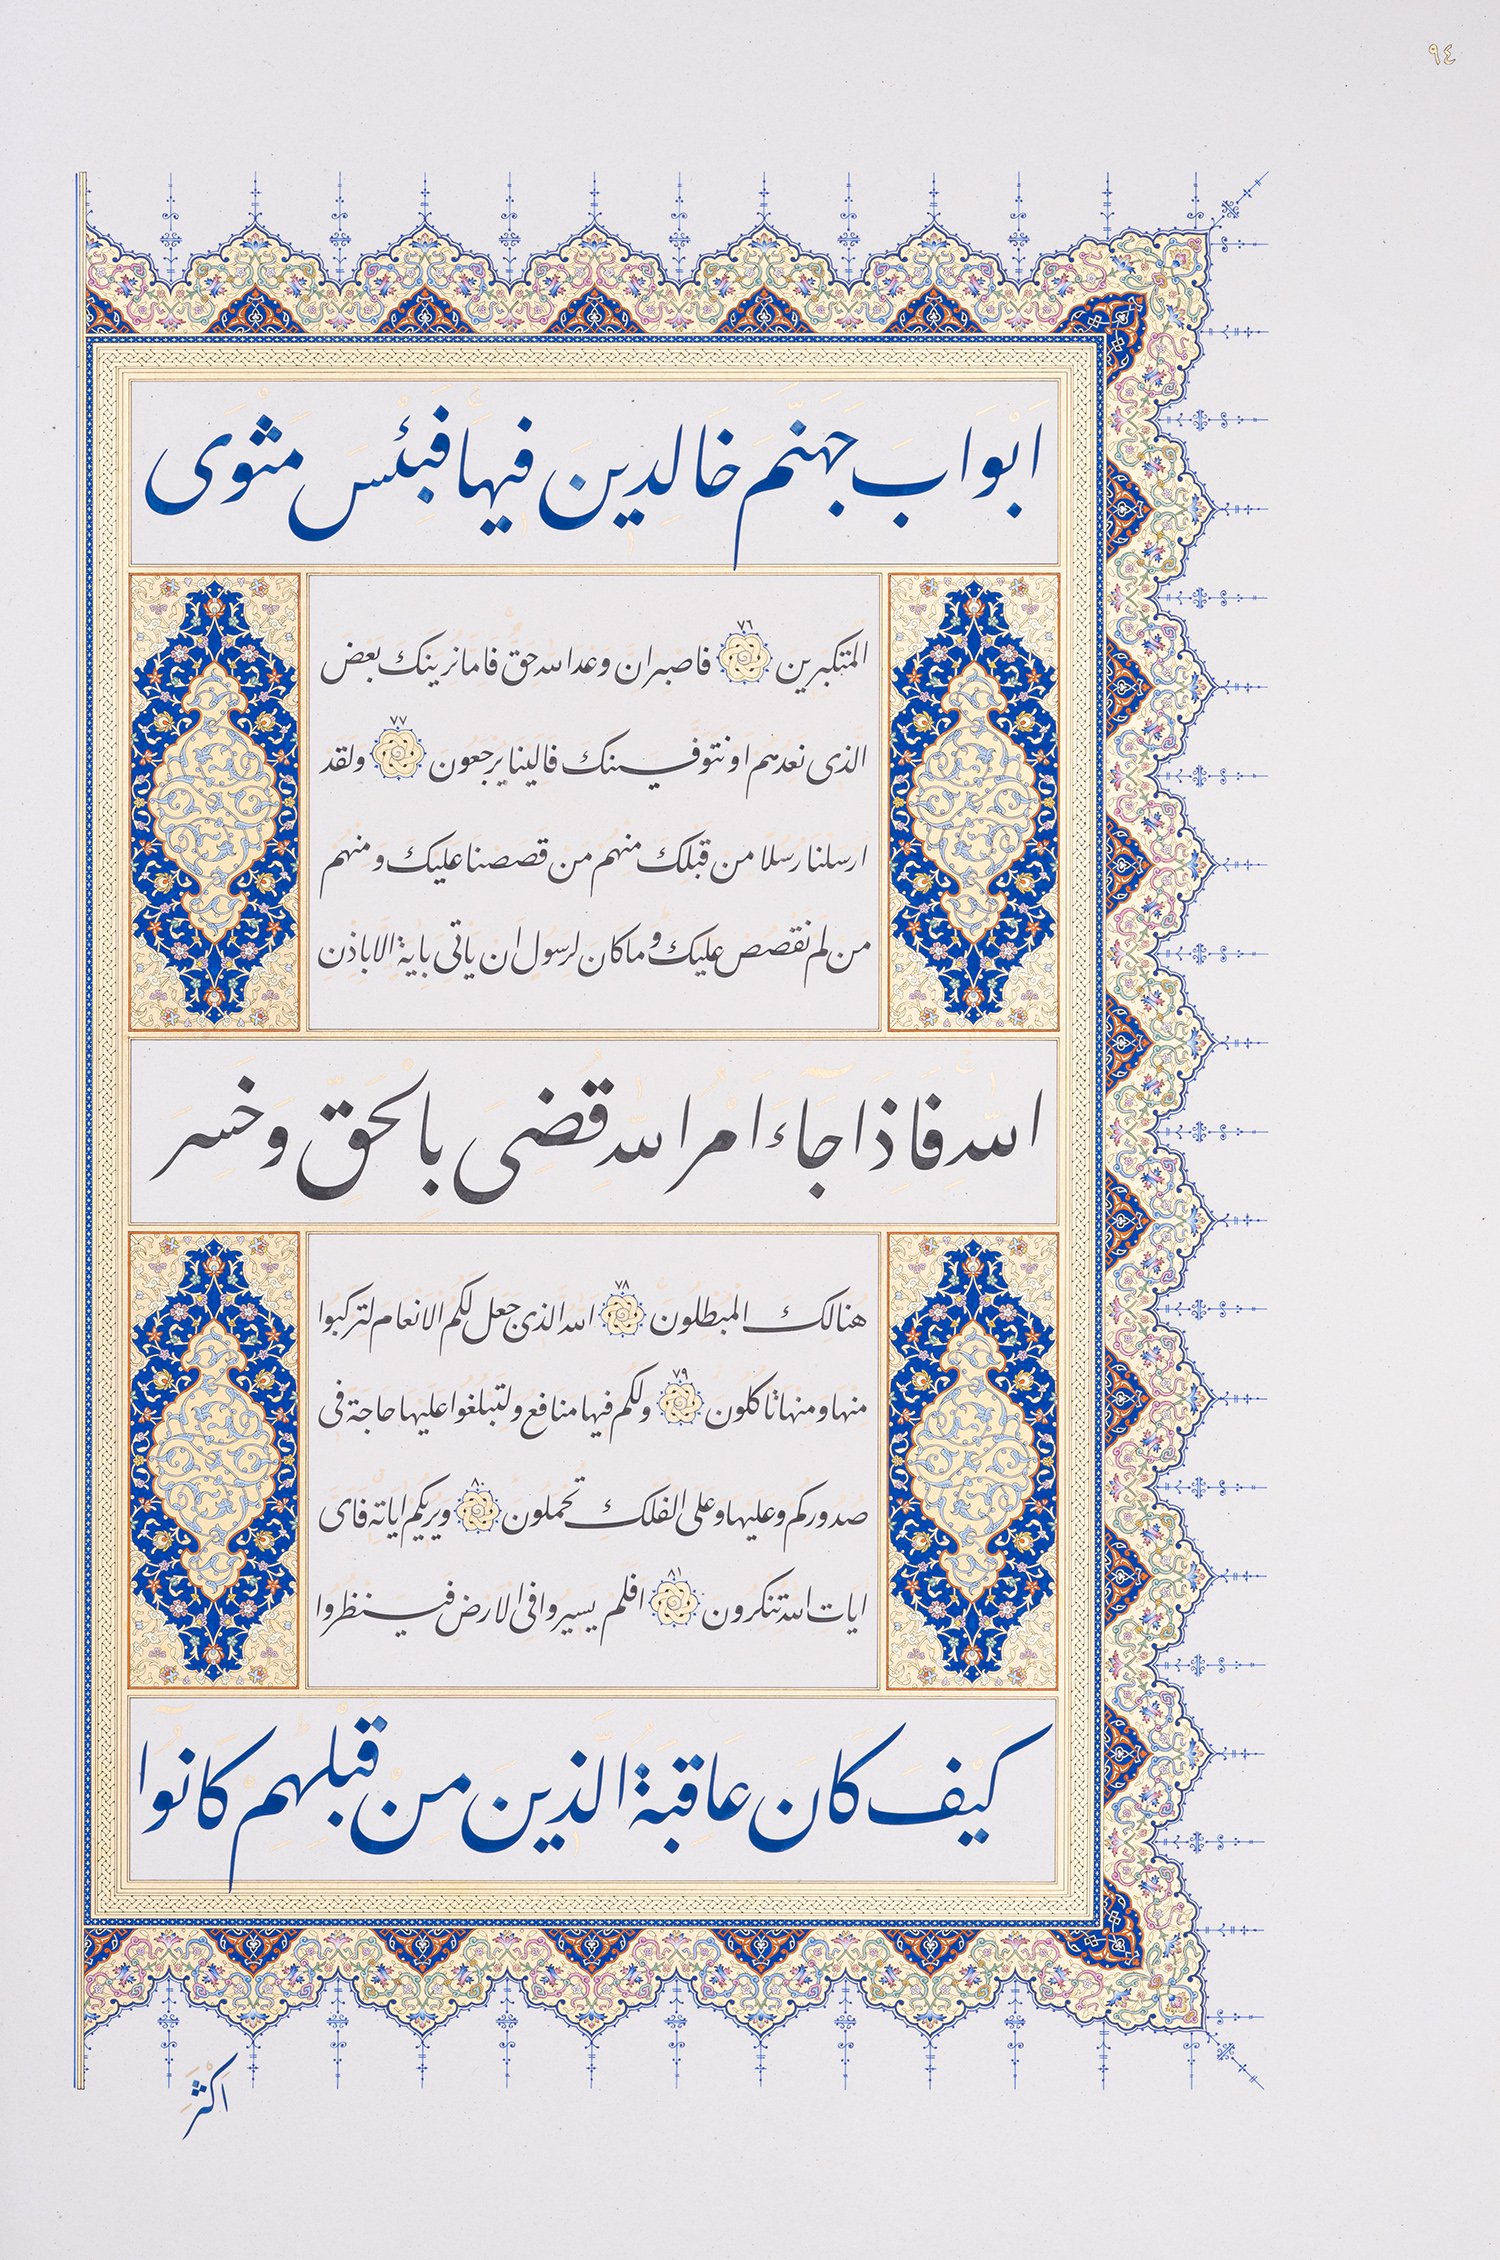 ٩٤
اَبْوَابَ جَهَنَّمَ خَالِدِينَ فِيهَا فَبِئْسَ مَثْوَى
المتكبرين ٧٦ فاصبر ان وعد الله حق فاما نرينك بعض
الذى نعدهم او نتوفينك فالينا يرجعون ٧٧ ولقد
ارسلنا رسلا من قبلك منهم من قصصنا عليك ومنهم
من لم نقصص عليك وما كان لرسول ان ياتى باية الا باذن
اللهِ فَاِذَا جَاءَ اَمْرُ اللهِ قُضِىَ بِالْحَقِّ وَخَسِرَ
هنالك المبطلون ٧٨ الله الذى جعل لكم الانعام لتركبوا
منها ومنها تاكلون ٧٩ ولكم فيها منافع ولتبلغوا عليها حاجة فى
صدوركم وعليها وعلى الفلك تحملون ٨٠ ويريكم اياته فاى
ايات الله تنكرون ٨١ افلم يسيروا فى الارض فينظروا
كَيْفَ كَانَ عَاقِبَةُ الَّذِينَ مِنْ قَبْلِهِمْ كَانُوا
اَكْثَرَ